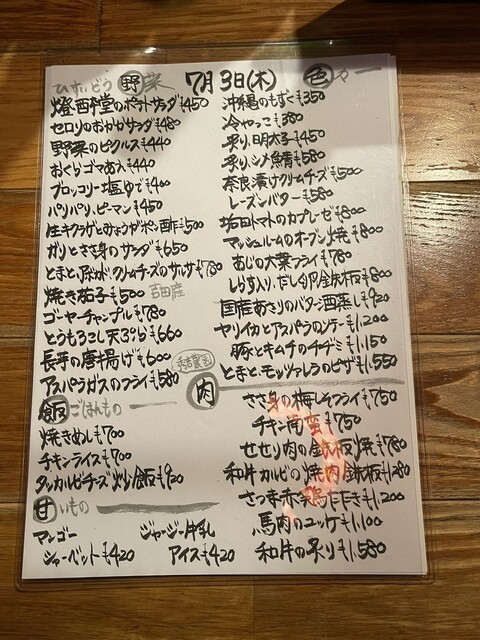 7月3日(木)
ひすいどう
野菜
燈酉予堂のポテトサラダ ¥450
セロリのおかかサラダ ¥480
野菜のピクルス ¥440
おくらゴマあえ ¥440
ブロッコリー塩ゆで ¥400
パリパリ、ピーマン ¥450
生キクラゲとみょうがポン酢 ¥500
ガリとささ身のサラダ ¥650
とまととアボカド、クリームチーズのサルサ ¥780
焼き茄子 ¥500 吉田産
ゴーヤーチャンプル ¥780
とうもろこし天ぷら ¥660
長芋の唐揚げ ¥600
アスパラガスのフライ ¥580
飯 ごはんもの
焼きめし ¥700
チキンライス ¥700
タッカルビチーズ炒り飯 ¥920
甘いもの
マンゴー
シャーベット ¥420
ジャージー牛乳
アイス ¥420
色々
沖縄のもずく ¥350
冷やっこ ¥380
炙り明太子 ¥450
炙り〆鯖 ¥580
奈良漬けクリームチーズ ¥500
レーズンバター ¥580
トマトのカプレーゼ ¥800
マッシュルームのオーブン焼 ¥800
あじの大葉フライ ¥780
しらす入り、だし卵鉄板 ¥800
国産あさりのバター酒蒸し ¥920
ヤリイカとアスパラのソテー ¥1,200
豚とキムチのチヂミ ¥1,150
とまととモッツァレラのピザ ¥1,550
肉
ささ身の梅しそフライ ¥750
チキン南蛮 ¥750
せせり肉の鉄板焼 ¥780
和牛カルビの焼肉鉄板 ¥1,280
さつま赤鶏たたき ¥1,200
馬肉のユッケ ¥1,100
和牛の炙り ¥1,580